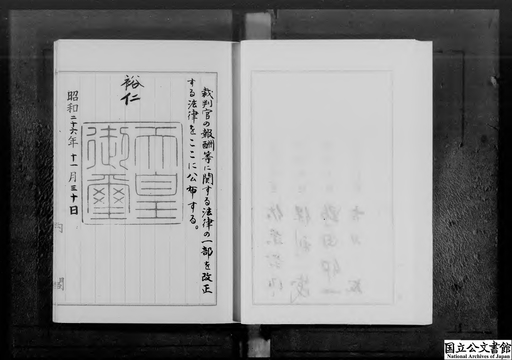 裁判官の報酬等に関する法律の一部を改正
する法律をここに公布する。
裕仁
天皇
御璽
昭和二十六年十一月三十日
内閣
国立公文書館
National Archives of Japan